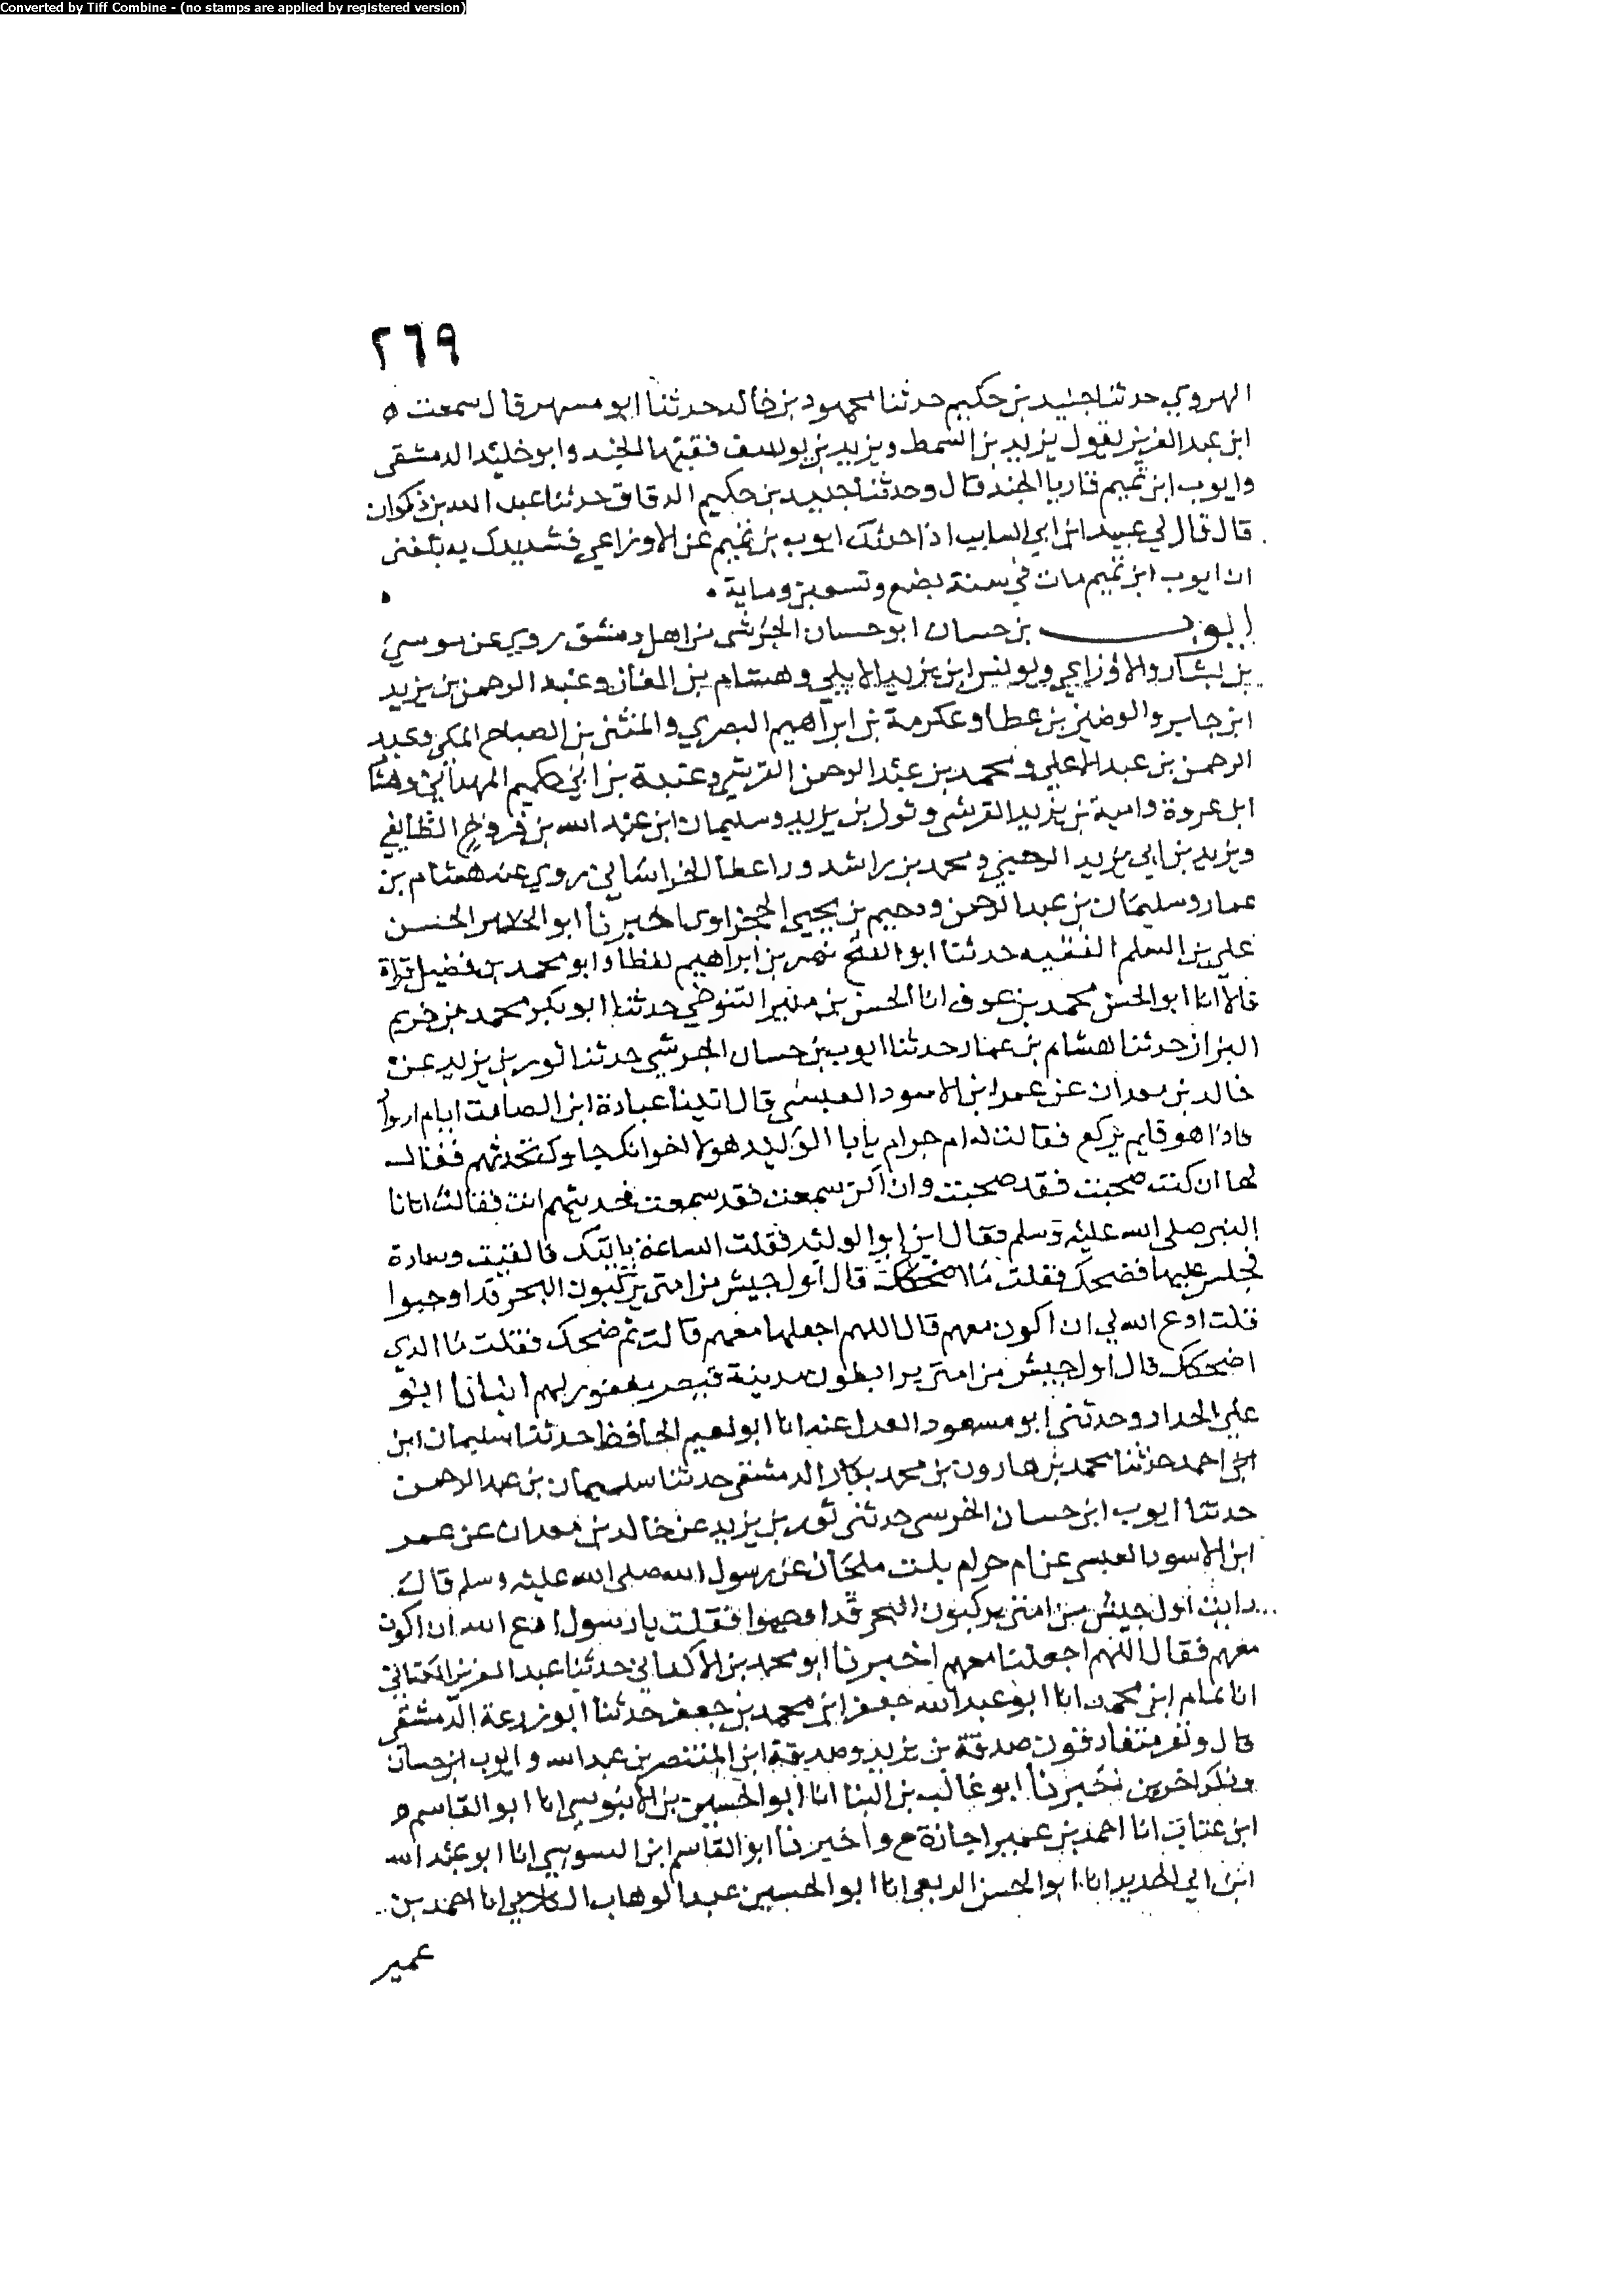 Converted by Tiff Combine - (no stamps are applied by registered version)
٢٦٩
الهروي حدثنا جنيد بن حكيم حدثنا محمود بن خالد حدثنا ابو مسهر قال سمعت ه
ابن عبد العزيز يقول يزيد بن السمط ويزيد بن يوسف فقيها الجند وابو خليد الدمشقى
وايوب ابن تميم قاريا الجند قال وحدثنا جنيد بن حكيم الدقاق حدثنا عبد الله بن ذكوان
قال قال لي عبيد ابن ابي السايب اذا حدثك ايوب بن تميم عن الاوزاعي فشد يدك به بلغنى
ان ايوب ابن تميم مات في سنة بضع وتسعين وماية .
ايوب بن حسان ابو حسان الجرشى من اهل دمشق روي عن موسى
بن بشار والاوزاعي ويونس ابن يزيد الايلي وهشام بن الغاز وعبد الرحمن بن يزيد
ابن جابر والوضين بن عطا وعكرمة بن ابراهيم البصري والمثنى بن الصباح المكى وعبد
الرحمن بن عبد الاعلي ومحمد بن عبد الرحمن القرشي وعتبة بن ابي حكيم الهمداني وهشا
ابن عروة وامية بن يزيد القرشى وثور بن يزيد وسليمان ابن عبد الله بن فروخ الطايفي
ويزيد بن ابي يزيد الرحبي ومحمد بن راشد الخراساني روي عنه هشام بن
عمار وسليمان بن عبد الرحمن ودحيم بن يحيى الحجراوى اخبرنا ابو الحسن
علي بن المسلم الفقيه حدثنا ابو الفتح نصر بن ابراهيم لفظا وابو محمد بن فضيل قراة
قالا انا ابو الحسن محمد بن عوف انا الحسن بن منير التنوخي حدثنا ابو بكر محمد بن خريم
البزاز حدثنا هشام بن عمار حدثنا ايوب بن حسان الجرشي حدثنا ثور بن يزيد عن
خالد بن معدان عن عمر ابن الاسود العبسى قال اتينا عبادة ابن الصامت
فاذا هو قايم يركع فقالت له ام حرام يابا الوليد هولا اخوانك جاوك تحدثهم فقال
لها ان كنت صحبت فقد صحبت وان اكن سمعت فقد سمعت فحدثيهم انت فقالت اتانا
النبى صلى الله عليه وسلم فقال اين ابو الوليد فقلت الساعة ياتيك فالقيت وسادة
فجلس عليها فضحك فقلت ما اضحكك قال اول جيش من امتى يركبون البحر قد اوجبوا
قلت ادع الله لي ان اكون معهم قال اللهم اجعلها معهم قالت ثم ضحك فقلت ما الذي
اضحكك قال اول جيش من امتى يرابطون مدينة قيصر مغفور لهم انبانا ابو
علي الحداد وحدثني ابو مسعود العدل عنه انا ابو نعيم الحافظ حدثنا سليمان ابن
احمد حدثنا محمد بن هارون بن محمد بكار الدمشقى حدثنا سليمان بن عبد الرحمن
حدثنا ايوب ابن حسان الجرسى حدثنى ثور بن يزيد عن خالد بن معدان عن عمر
ابن الاسود العبسى عن ام حرام بنت ملحان عن رسول الله صلى الله عليه وسلم قالت
رايت اول جيش من امتى يركبون البحر قد اوجبوا فقلت يا رسول ادع الله ان اكون
معهم فقال اللهم اجعلنا معهم اخبرنا ابو محمد بن الاكفاني حدثنا عبد العزيز الكتاني
انا تمام ابن محمد انا ابو عبد الله جعفر ابن محمد بن جعفر حدثنا ابو زرعة الدمشقى
قال ونفر متقاربون صدقة بن يزيد وصدقة ابن المنتصر بن عبد الله وايوب ابن حسان
وذكر اخرين اخبرنا ابو غالب بن البنا انا ابو الحسين بن الابنوسي انا ابو القاسم ه
ابن عتاب انا احمد بن عمير اجازة ح واخبرنا ابو القاسم ابن السوسي انا ابو عبد الله
ابن ابي الحديد انا ابو الحسن الربعي انا ابو الحسين عبد الوهاب الكلابي انا احمد بن
عمير